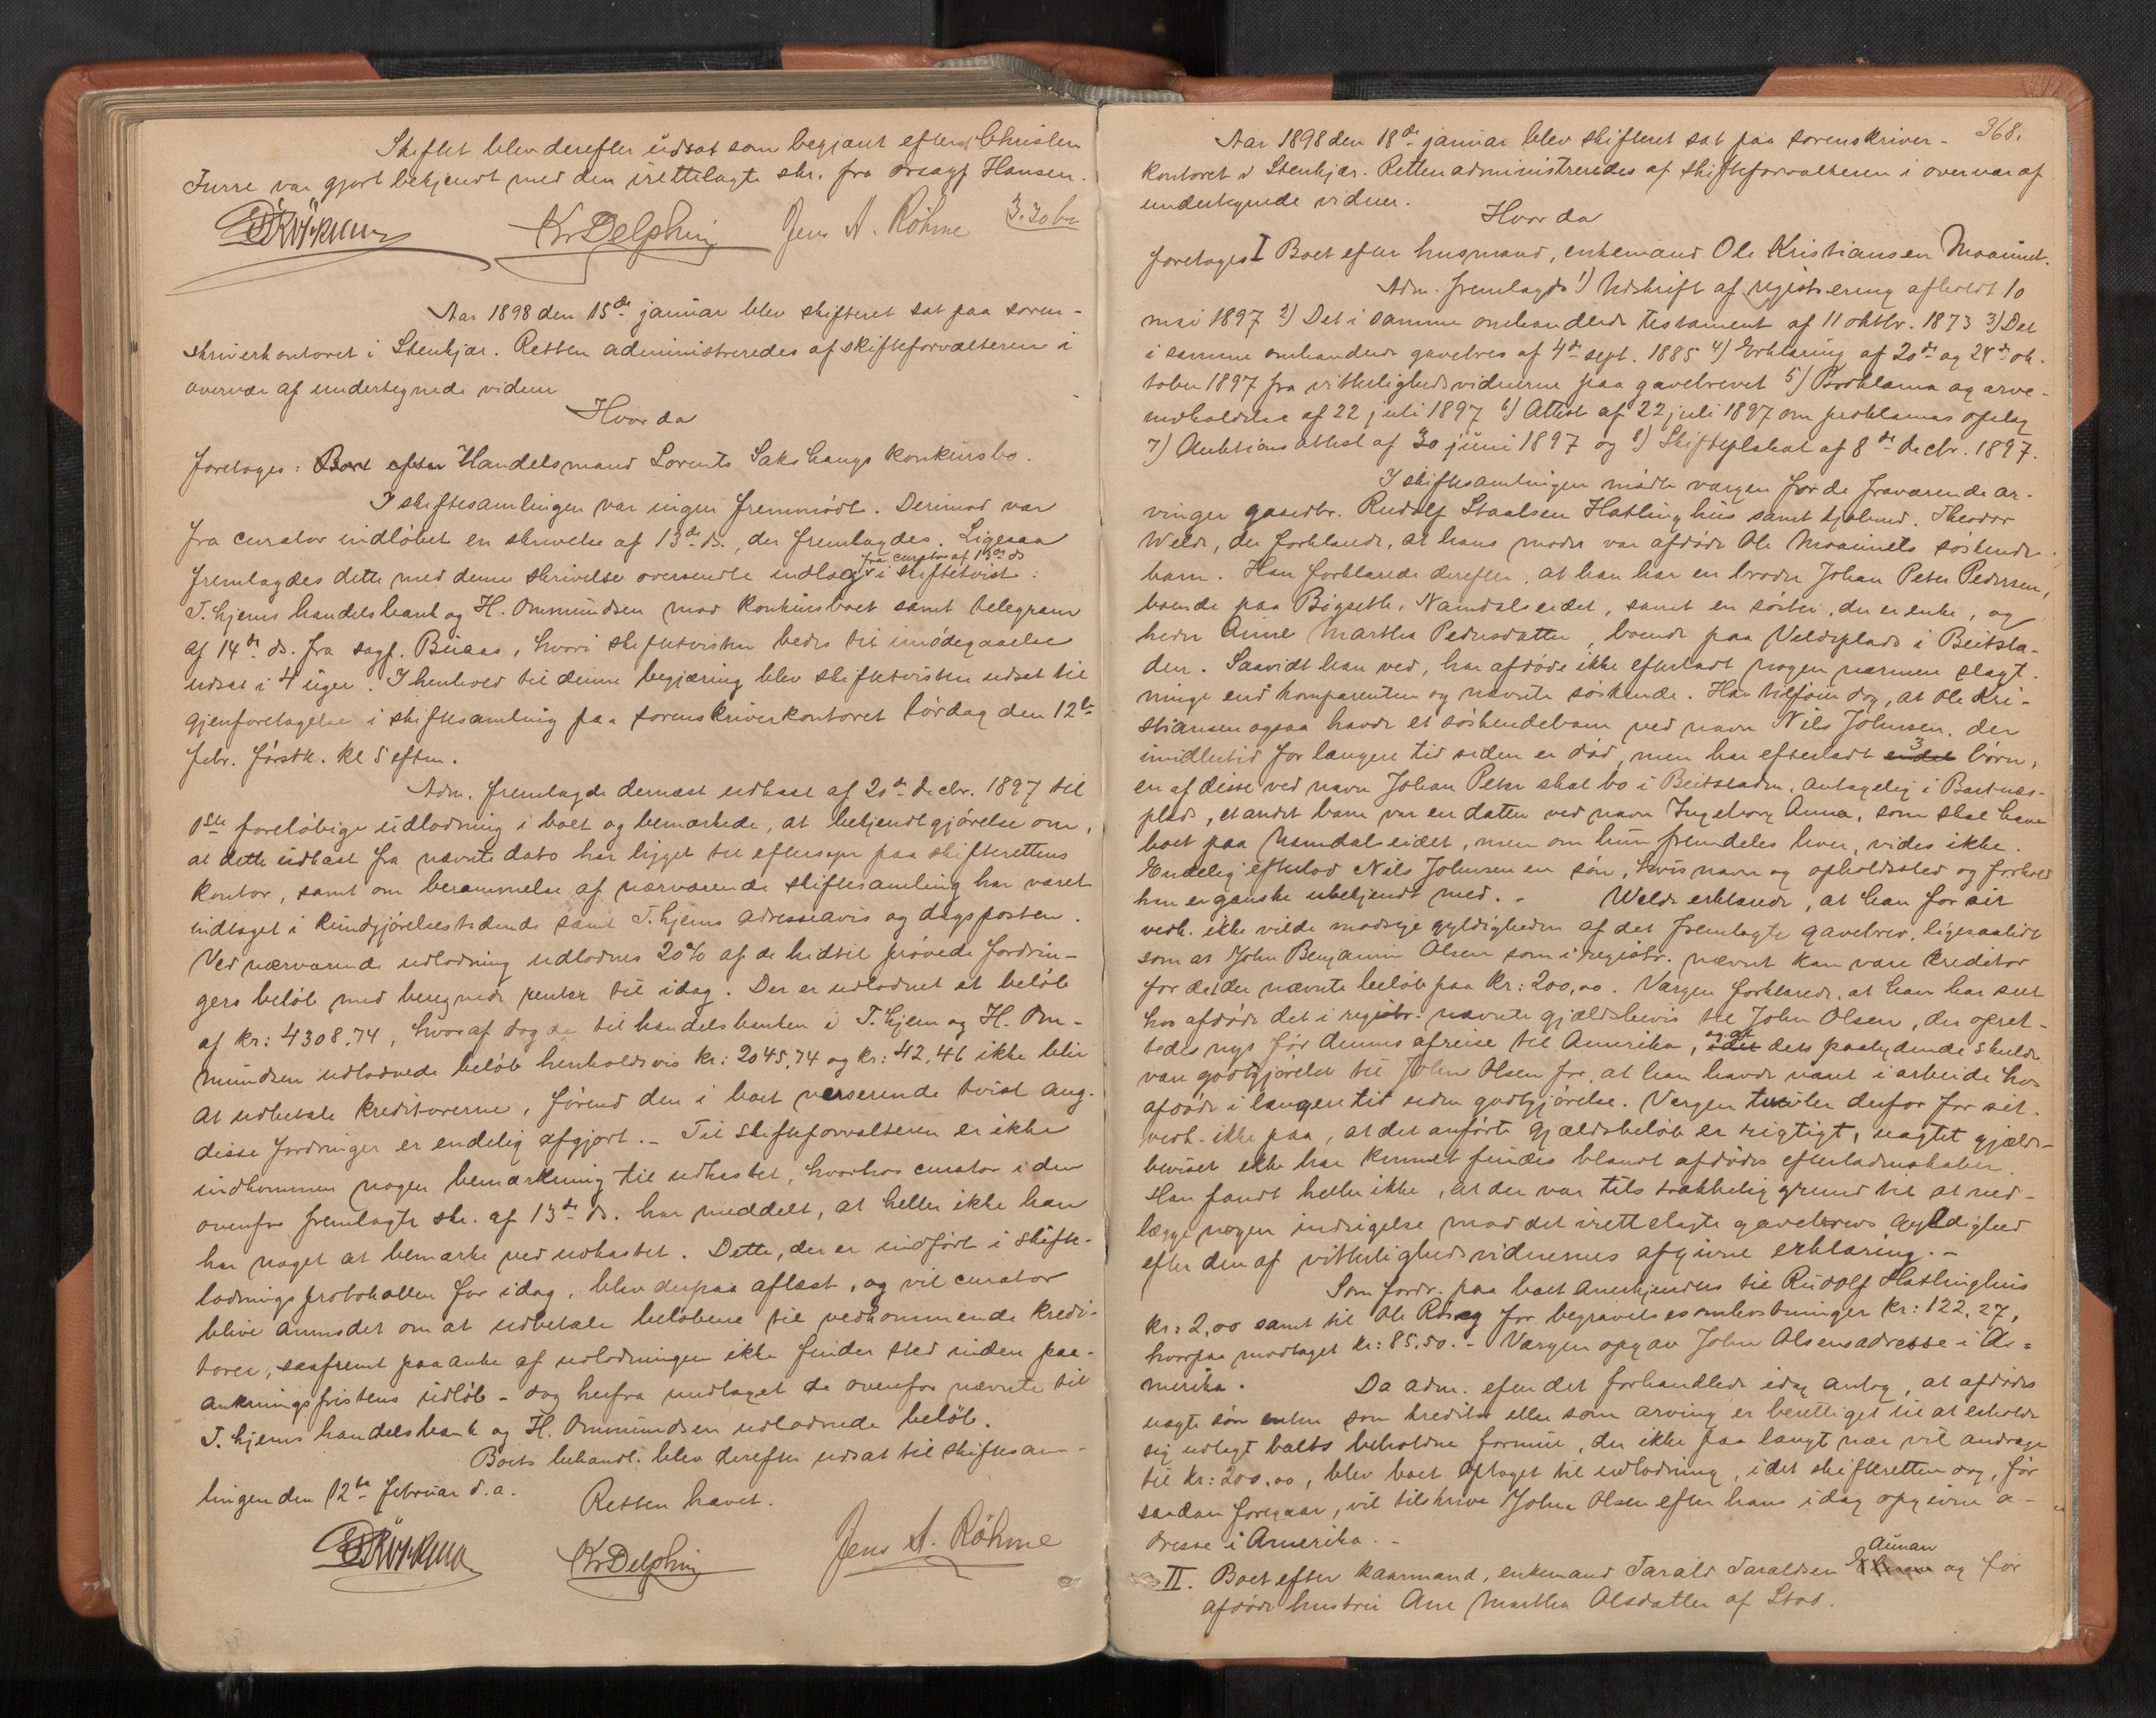 Skiftet blev derefter udsat som begjært efterat Christen
Furre var gjort bekjendt med den irettelagte skr. fra orsagf. Hansen.
KrDelphin Jens A. Röhme
Aar 1898 den 15de januar blev skifteret sat paa soren-
skriverkontoret i Stenkjær. Retten administreredes af skifteforvalteren i
overvær af undertegnede vidner
Hvor da
foretoges: Boet efter Handelsmand Lorents Sakshaugs konkursbo.
I skiftesamlingen var ingen fremmødt. Derimod var
fra curator indløbet en skrivelse af 13de ds., der fremlagdes. Ligesaa
fremlagdes dette med denne skrivelse oversendte indlæg fra curator af 13de ds i skiftetvist:
T.hjems handelsbank og H. Ommundsen mod konkursboet samt telegram
af 14de ds. fra sagf. Buaas, hvori skiftetvisten bedes til imødegaaelse
udsat i 4 uger. I henhold til denne begjæring blev skiftetvisten udsat til
gjenforetagelse i skiftesamling paa sorenskriverkontoret lørdag den 12te
febr. førstk. kl 5 eftm.
Adm. fremlagde dernæst udkast af 20de decbr. 1897 til
1ste foreløbige udlodning i boet og bemærkede, at bekjendtgjørelse om,
at dette udkast fra nævnte dato har ligget til eftersyn paa skifterettens
kontor, samt om berammelse af nærværende skiftesamling har været
indtaget i kundgjørelsestidende samt T.hjems adresseavis og dagsposten.
Ved nærværende udlodning udlodnes 20% af de hidtil prøvede fordrin-
gers beløb med beregnede renter til idag. Der er udlodnet et beløb
af kr: 4308.74, hvoraf dog de til handelsbanken i T.hjem og H. Om-
mundsen udlodnede beløb henholdsvis kr: 2045.74 og kr: 42.46 ikke blir
at udbetale kreditorerne, førend den i boet verserende tvist ang.
disse fordringer er endelig afgjort. - Til skifteforvalteren er ikke
indkommen nogen bemærkning til udkastet, hvorhos curator i den
ovenfor fremlagte skr. af 13de ds. har meddelt, at heller ikke han
har noget at bemærke ved udkastet. Dette, der er indført i skifte-
lodningsprotokollen for idag, blev derpaa aflæst, og vil curator
blive anmodet om at udbetale beløbene til vedkommende kredi-
torer, saafremt paaanke af udlodningen ikke finder sted inden paa-
ankningsfristens udløb - dog herfra undtaget de ovenfor nævnte til
T.hjems handelsbank og H. Ommundsen udlodnede beløb.
Boets behandl. blev derefter udsat til skiftesam-
lingen den 12te februar d.a.
Retten hævet.
KrDelphin Jens A. Röhme
368.
Aar 1898 den 18de januar blev skifteret sat paa sorenskriver-
kontoret i Stenkjær. Retten administreredes af skifteforvalteren i overvær af
undertegnede vidner.
Hvor da
foretoges I Boet efter husmand, enkemand Ole Kristiansen Moaunet.
Adm. fremlagde 1) Udskrift af registrering afholdt 10
mai 1897 2) Det i samme omhandlede testament af 11 oktbr. 1873 3) Det
i samme omhandlede gavebrev af 4de sept. 1885 4) Erklæring af 20de og 24de ok-
tober 1897 fra vitterlighedsvidnerne paa gavebrevet 5) Proklama og arve-
indkaldelse af 22 juli 1897 6) Attest af 22 juli 1897 om proklamas opslag
7) Auktionsattest af 30 juni 1897 og 8) Skifteplakat af 8de decbr. 1897.
I skiftesamlingen mødte værgen for de fraværende ar-
vinger gaardbr. Rudolf Staalsen Hatlinghus samt Theodor
Welde, der forklarede, at hans moder var afdøde Ole Moaunets søskende-
barn. Han forklarede derefter, at han har en broder Johan Peter Pedersen,
boende paa Bøgseth, Namdalseidet, samt en søster, der er enke, og
heder Anne Martha Pedersdatter, boende paa Veldeplads i Beitsta-
den. Saavidt han ved, har afdøde ikke efterladt nogen nærmere slægt-
ninge end komparenten og nævnte søskende. Han tilføiede dog, at Ole Kri-
stiansen ogsaa havde et søskendebarn ved navn Nils Johnsen, der
imidlertid for længere tid siden er død, men har efterladt 3 børn,
en af disse ved navn Johan Peter skal bo i Beitstaden, antagelig i Bartnæs-
plads, et andet barn var en datter ved navn Ingeborg Anna, som skal have
boet paa Namdalseidet, men om hun fremdeles lever, vides ikke.
Endelig efterlod Nils Johnsen en søn, hvis navn og opholdssted og forhold
han er ganske ubekjendt med. - Welde erklærede, at han for sit
vedk. ikke vilde modsige gyldigheden af det fremlagte gavebrev, ligesaalidt
som at John Benjamin Olsen som i registr. nævnt kan være kreditor
for det der nævnte beløb paa kr: 200,00. Værgen forklarede, at han har set
hos afdøde det i registr. nævnte gjældsbevis til John Olsen, der opret-
tedes nys før dennes afreise til Amerika, og at dets paalydende skulde
være godtgjørelse til John Olsen for, at han havde været i arbeide hos
afdøde i længere tid uden godtgjørelse. Værgen tviler derfor for sit
vedk. ikke paa, at det anførte gjældsbeløb er rigtigt, uagtet gjælds-
beviset ikke har kunnet findes blandt afdødes efterladenskaber.
Han fandt heller ikke, at der var tilstrækkelig grund til at ned-
lægge nogen indsigelse mod det irettelagte gavebrevs gyldighed
efter den af vitterlighedsvidnernes afgivne erklæring. -
Som fordr. paa boet anerkjendtes til Rudolf Hatlinghus
kr: 2,00 samt til Ole for begravelsesomkostninger kr: 122,27,
hvorpaa modtaget kr: 85.50. - Værgen opgav John Olsens adresse i A-
merika. Da adm. efter det forhandlede idag antog, at afdødes
uægte søn enten som kreditor eller som arving er berettiget til at erholde
sig udlagt boets beholdne formue, der ikke paa langt nær vil andrage
til kr: 200,00, blev boet optaget til udlodning, idet skifteretten dog, før
saadan foregaar, vil tilskrive John Olsen efter hans idag opgivne a-
dresse i Amerika. -
II. Boet efter kaarmand, enkemand Tarald Taraldsen Aunan og før
afdøde hustru Ane Martha Olsdatter af Stod.